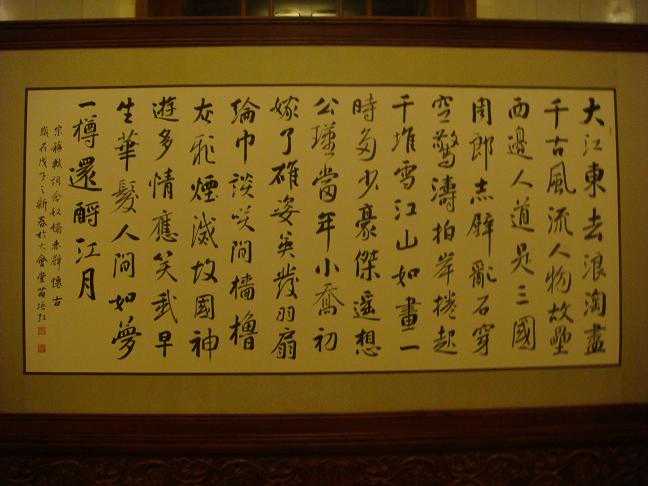 大江東去浪淘盡
千古風流人物故壘
西邊人道是三國
周郎赤壁亂石穿
空驚濤拍岸捲起
千堆雪江山如畫一
時多少豪傑遥想
公瑾當年小喬初
嫁了雄姿英發羽扇
綸巾談笑間檣櫓
灰飛煙滅故國神
遊多情應笑我早
生華髮人間如夢
一樽還酹江月
宋蘇軾詞念奴嬌赤壁懷古
歲在戊子之新春於大會堂苗培紅